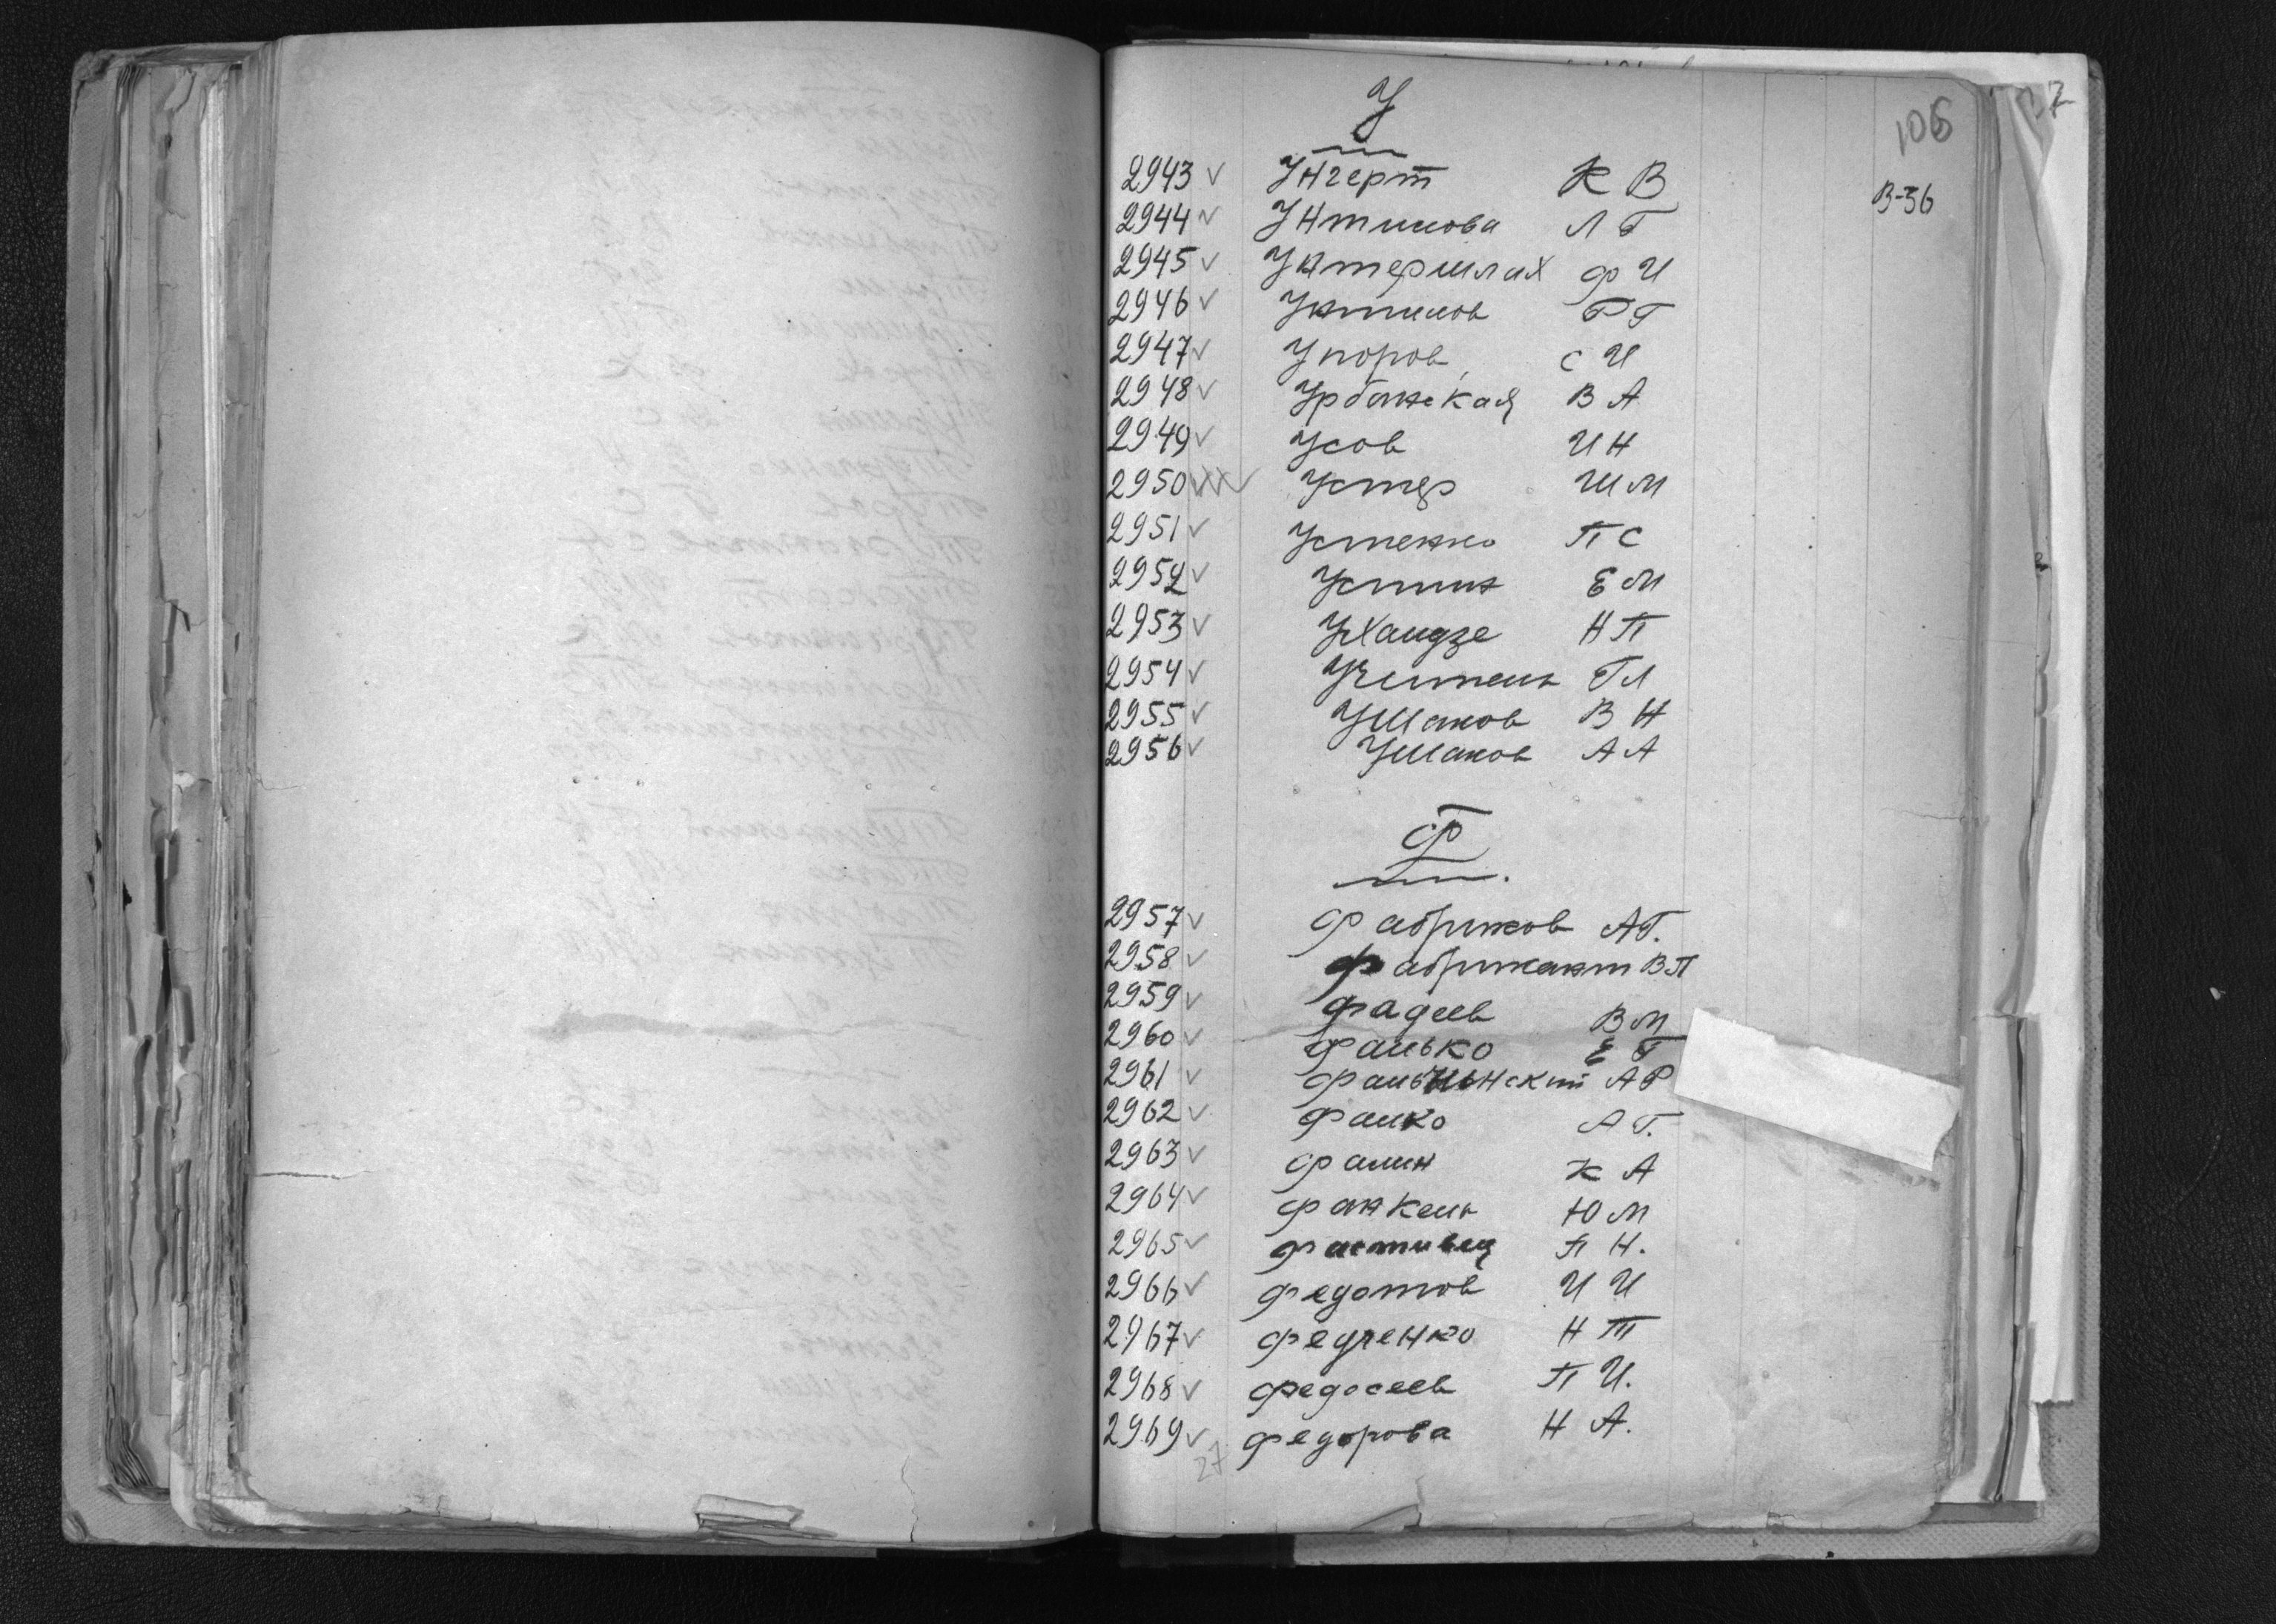 106
У
2943 Унгерт К В В-56
2944 Унтилова Л Г
2945 Унтершлах Ф И
2946 Унтилов Р Г
2947 Упоров С И
2948 Урбанская В А
2949 Усов И Н
2950 Устер Ш М
2951 Устенко П С
2952 Устин Е М
2953 Ухаидзе Н П
2954 Учитель Г Л
2955 Ушаков В Н
2956 Ушаков А А
Ф
2957 Фабриков А Г.
2958 Фабрикант В П
2959 Фадеев В М
2960 Фалько Е Г
2961 А Р
2962 Фалко А Г.
2963 Фалин К А
2964 Фанкель Ю М
2965 Фастивец П Н.
2966 Федотов И И
2967 Федченко Н Т
2968 Федосеев П И.
2969 Федорова Н А.
27